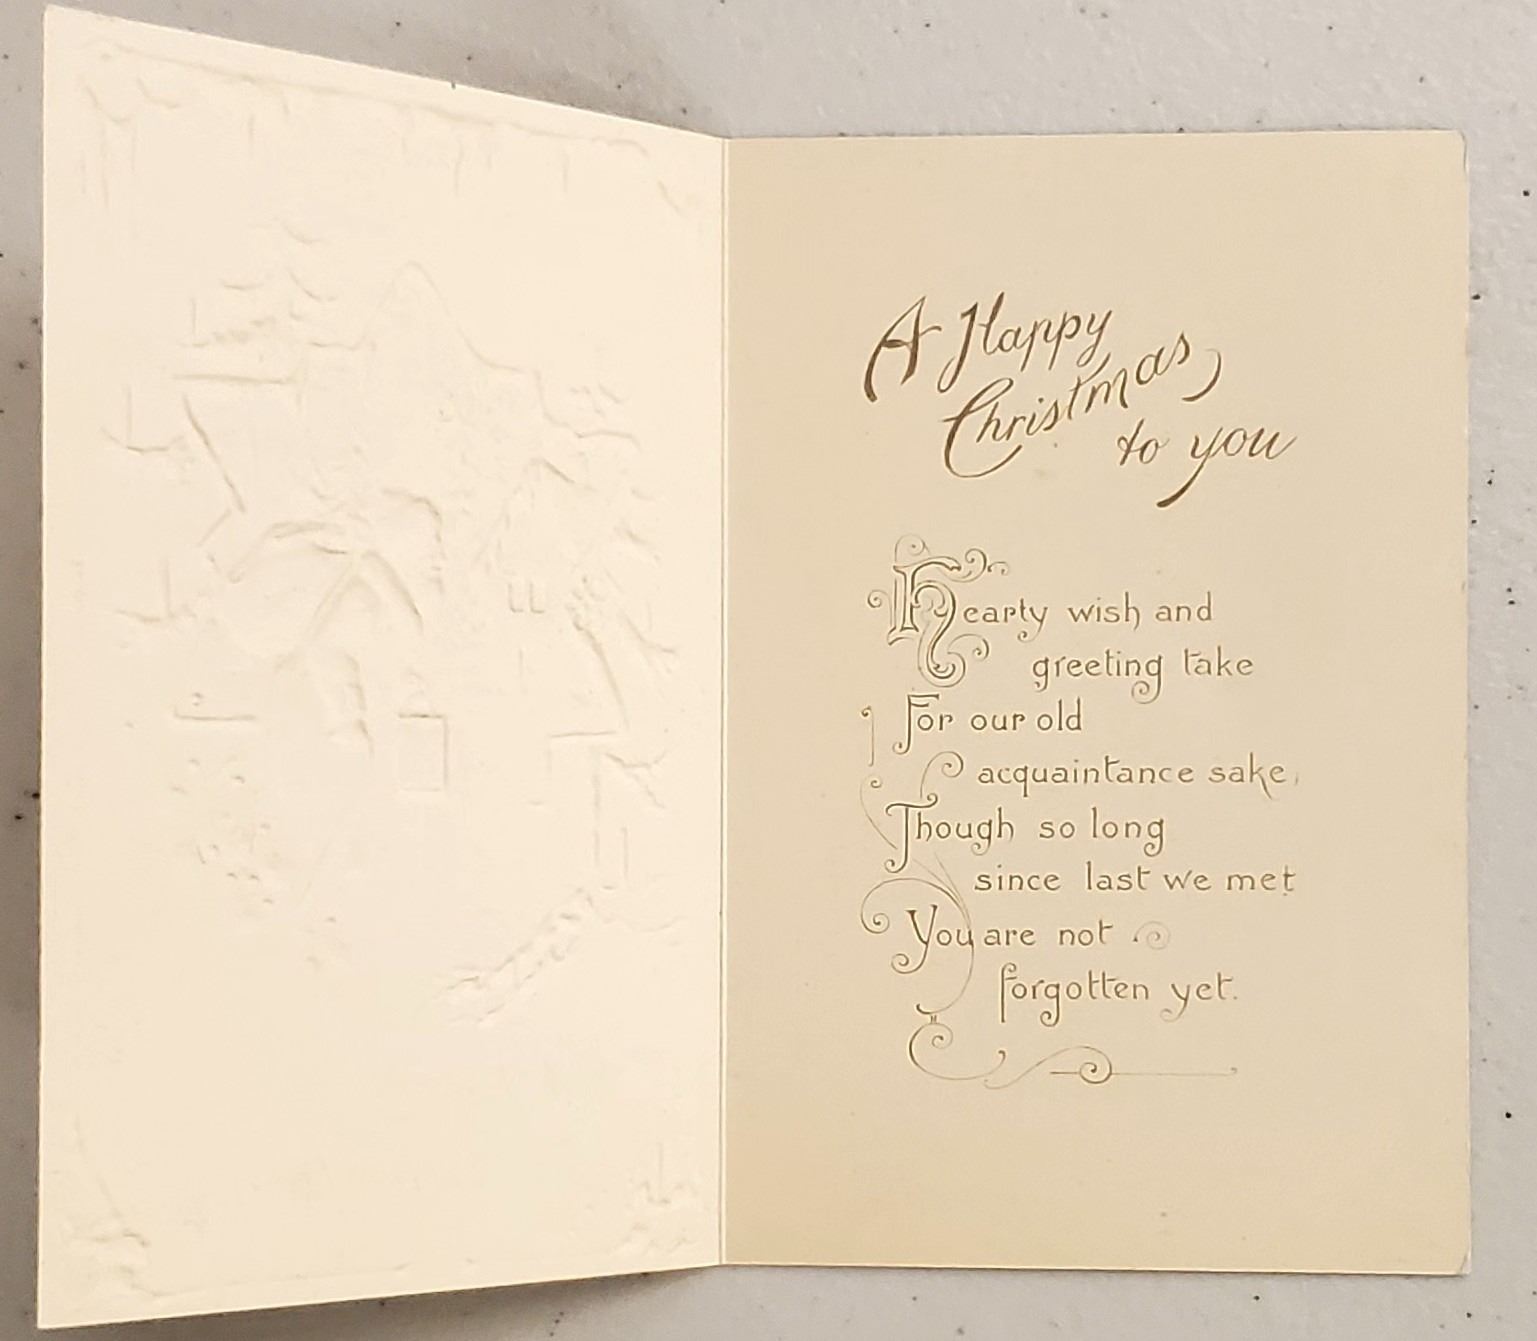 A Happy
Christmas
to you
Hearty wish and
greeting take
For our old
acquaintance sake,
Though so long
since last we met
You are not
forgotten yet.